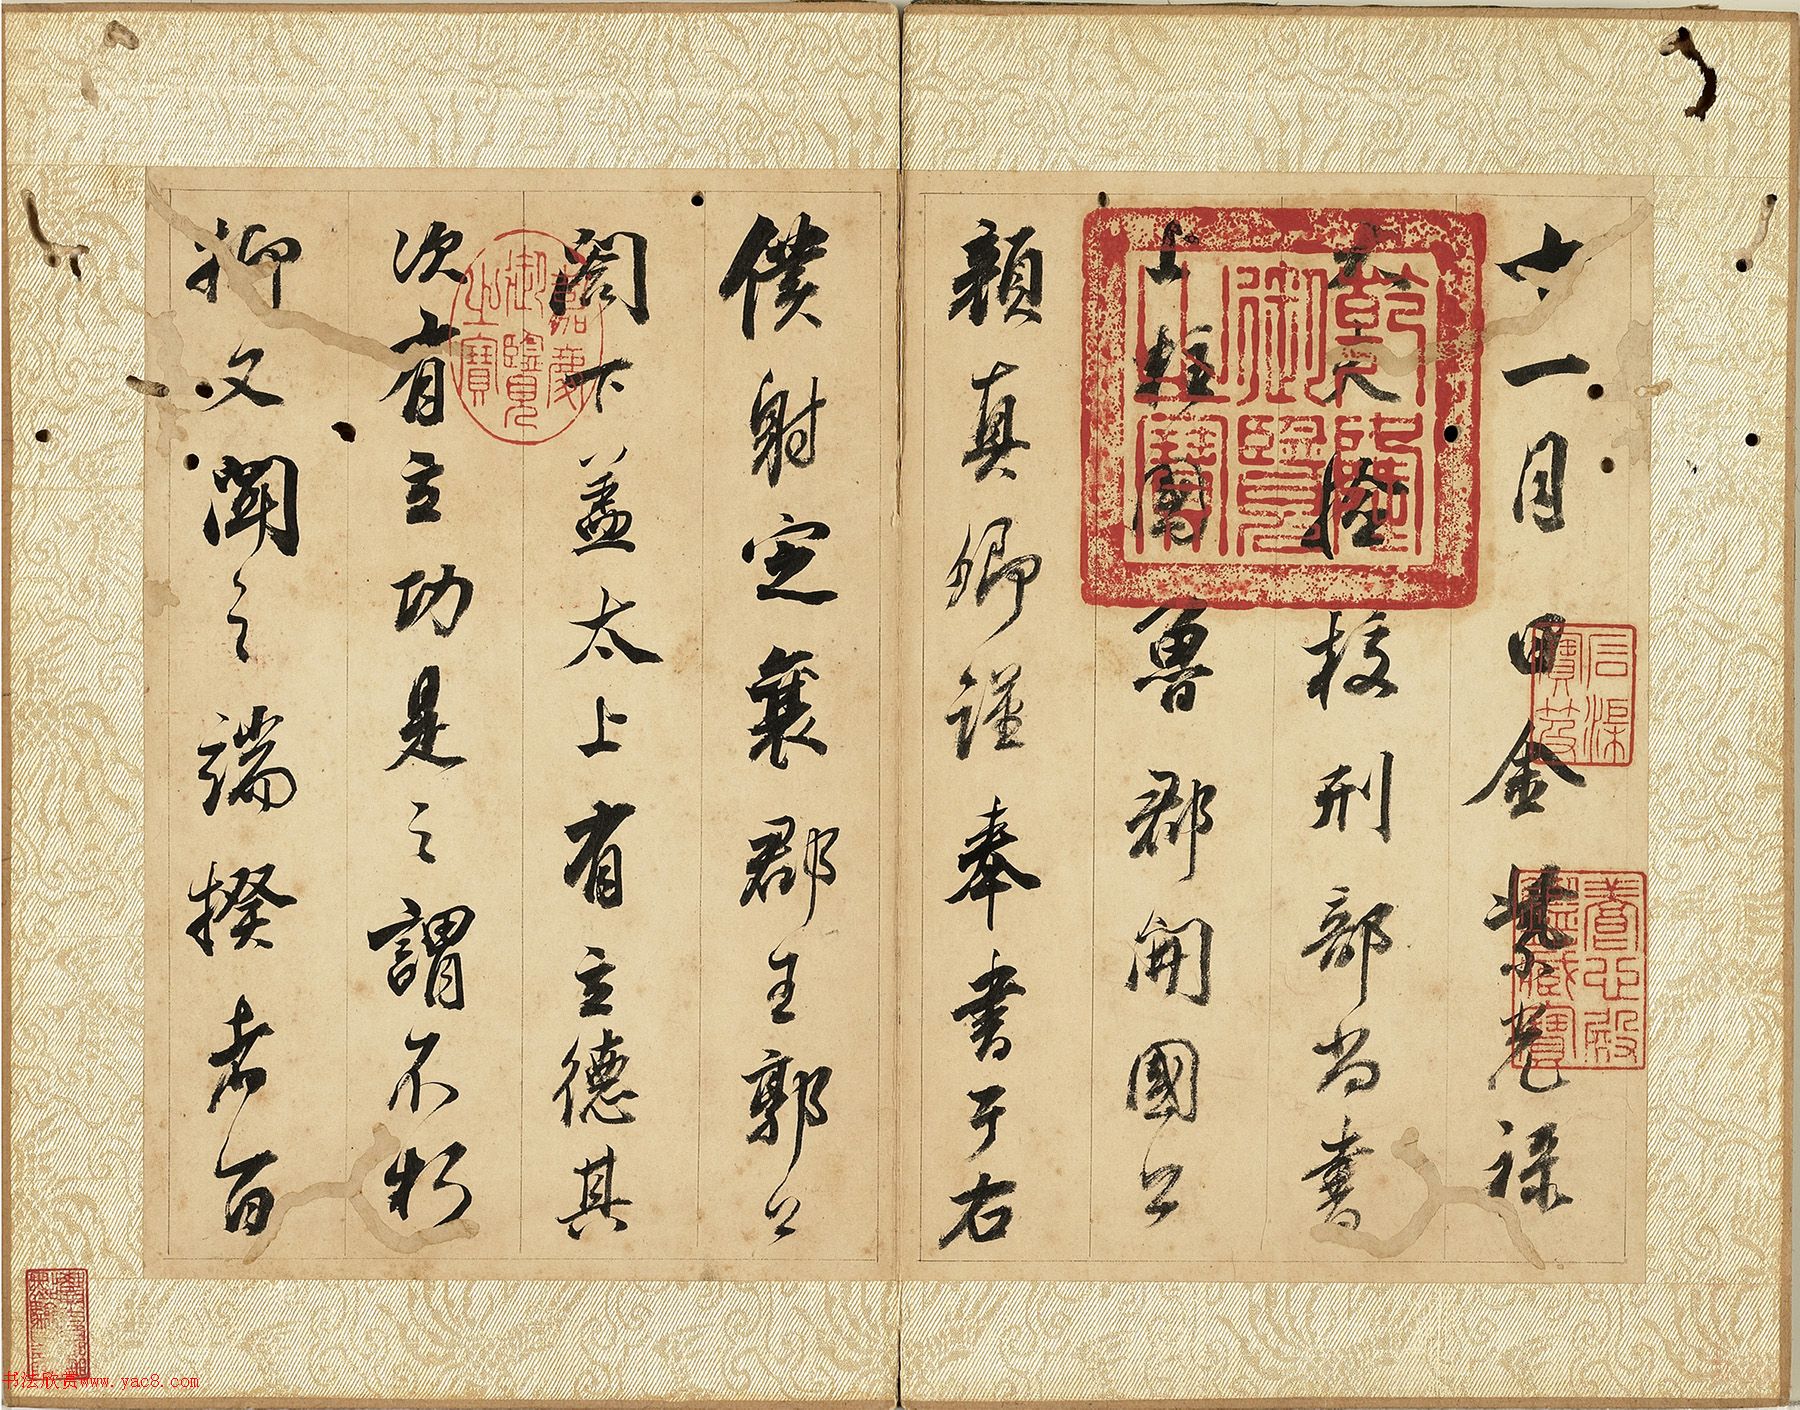 十一月日金紫光祿
大夫檢校刑部尚書
上柱國魯郡開國公
顏真卿謹奉書于右
僕射定襄郡王郭公
閣下蓋太上有立德其
次有立功是之謂不朽
抑又聞之端揆者百
乾隆御覽之寶
石渠寶笈
養心殿鑑藏寶
嘉慶御覽之寶
书法欣赏www.yac8.com